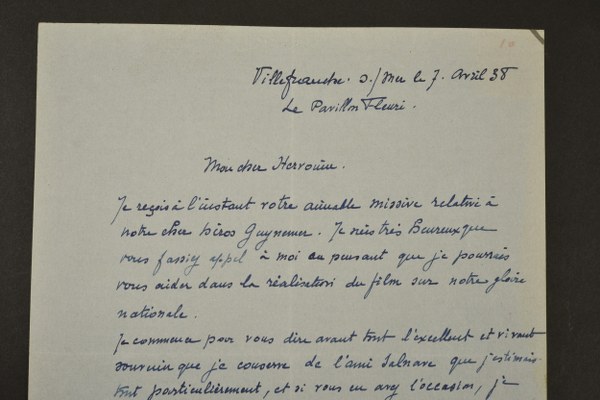 Villefranche. s/Mer le 7. Avril 38
Le Pavillon Fleuri.
Mon cher Hervouin.
Je reçois à l'instant votre aimable missive relative à
notre cher héros Guynemer. Je suis très heureux que
vous fassiez appel à moi en pensant que je pourrais
vous aider dans la réalisation du film sur notre gloire
nationale.
Je commence pour vous dire avant tout l'excellent et vivant
souvenir que je conserve de l'ami Jalnave que j'estimais
tout particulièrement, et si vous en avez l'occasion, je